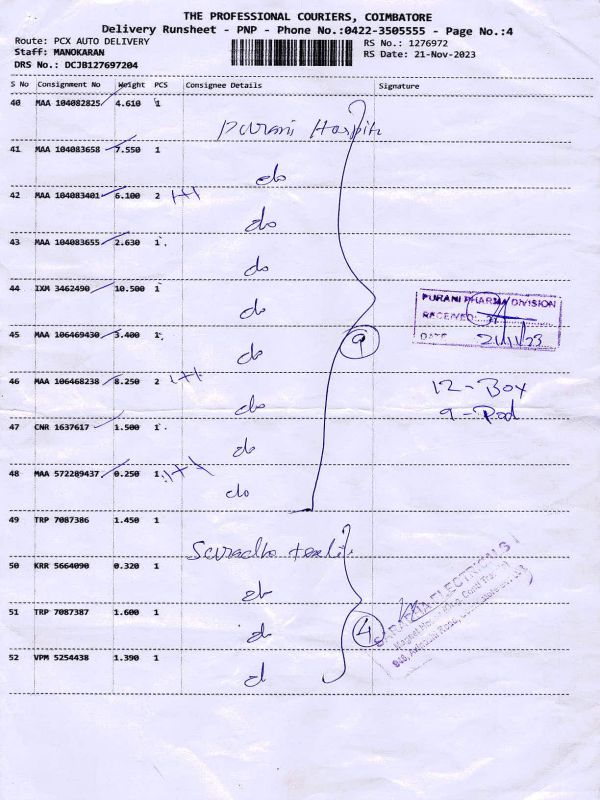 THE PROFESSIONAL COURIERS, COIMBATORE
Delivery Runsheet - PNP - Phone No.:0422-3505555 - Page No.:4
Route: PCX AUTO DELIVERY
Staff: MANOKARAN
DRS No.: DCJB127697204
RS No.: 1276972
RS Date: 21-Nov-2023
S No Consignment No Weight PCS Consignee Details Signature
40 MAA 104082825 4.610 1
Purani Hospit
41 MAA 104083658 7.550 1
do
42 MAA 104083401 6.100 2 1+1
do
43 MAA 104083655 2.630 1
do
44 IXM 3462490 10.500 1
do
PURANI PHARMA DIVISION
RECEIVED
DATE 21/11/23
45 MAA 106469430 3.400 1
do
9
46 MAA 106468238 8.250 2 1+1
do
12-Box
9-Pod
47 CNR 1637617 1.500 1
do
48 MAA 572289437 0.250 1 1+1
do
49 TRP 7087386 1.450 1
50 KRR 5664090 0.320 1
51 TRP 7087387 1.600 1
4
52 VPM 5254438 1.390 1
ELECTRICALS